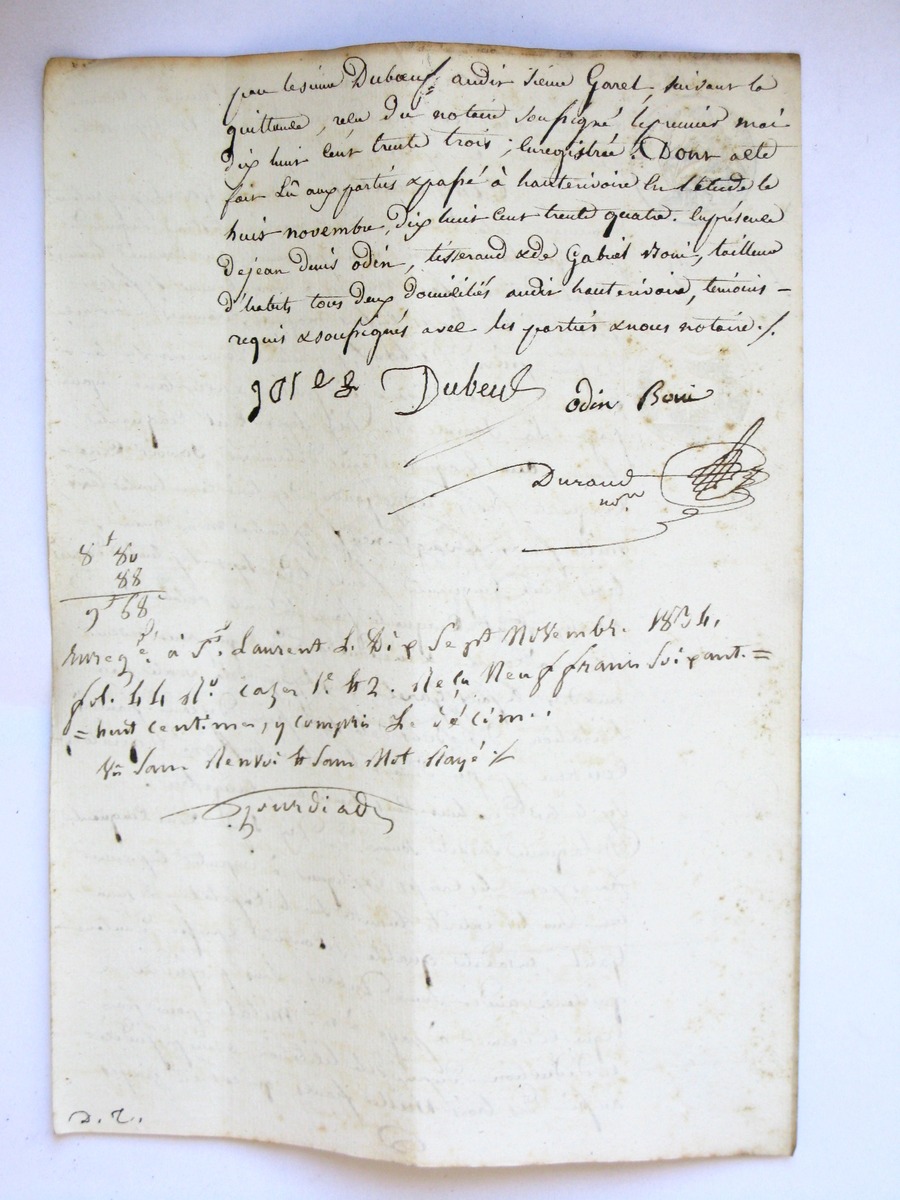 par le sieur Duboeuf audit sieur Goret, suivant la
quittance, reçu du notaire soussigné le premier mai
dix huit cent trente trois ; enregistrée. Dont acte
fait Lû aux parties & passé à hauterivoire En l'étude le
huit novembre, dix huit cent trente quatre. En présence
de jean Denis odin, tisserand & de Gabriel Boui, tailleur
d'habits tous deux domiciliés audit hauterivoire, témoins –
requis & soussignés avec les parties & nous notaire ./.
Dubeuf odin Boui
Durand
nore
8f 80
88
9f 68c
Enregé. à St. Laurent Le Dix Sept Novembre 1834,
fol. 44 Ro. cases 1e. et 2. Reçu Neuf francs Soixante =
= huit centimes, y compris Le décime.
Sans Renvoi et Sans Mot Rayé ./.
Gourdiad
D. T.